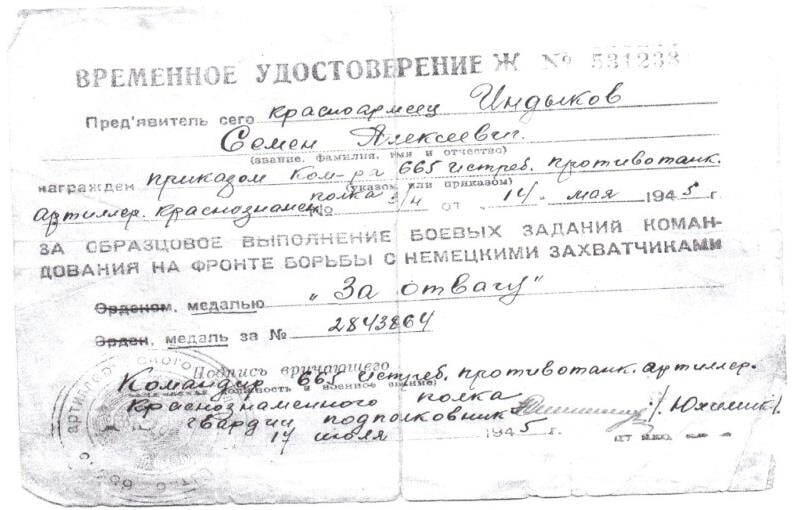 ВРЕМЕННОЕ УДОСТОВЕРЕНИЕ Ж № 531238
Пред'явитель сего красноармеец Индыков
Семен Алексеевич.
(звание, фамилия, имя и отчество)
награжден приказом Ком-ра 665 истреб. противотанк.
(указом или приказом)
артиллер. краснознамен полка № 3/н от „14" мая 1945 г.
ЗА ОБРАЗЦОВОЕ ВЫПОЛНЕНИЕ БОЕВЫХ ЗАДАНИЙ КОМАН-
ДОВАНИЯ НА ФРОНТЕ БОРЬБЫ С НЕМЕЦКИМИ ЗАХВАТЧИКАМИ
Орденом, медалью „За отвагу"
Орден, медаль за № 2843864
Подпись вручающего
Командир 665 истреб. противотанк. артиллер.
(должность и военное звание)
Краснознаменного полка
гвардии подполковник
14 июля 1945 г.